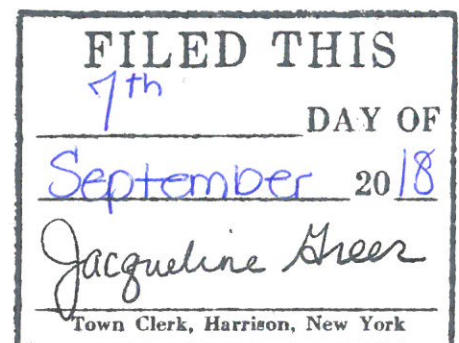 FILED THIS
7th
DAY OF
September 2018
Jacqueline Greer
Town Clerk, Harrison, New York